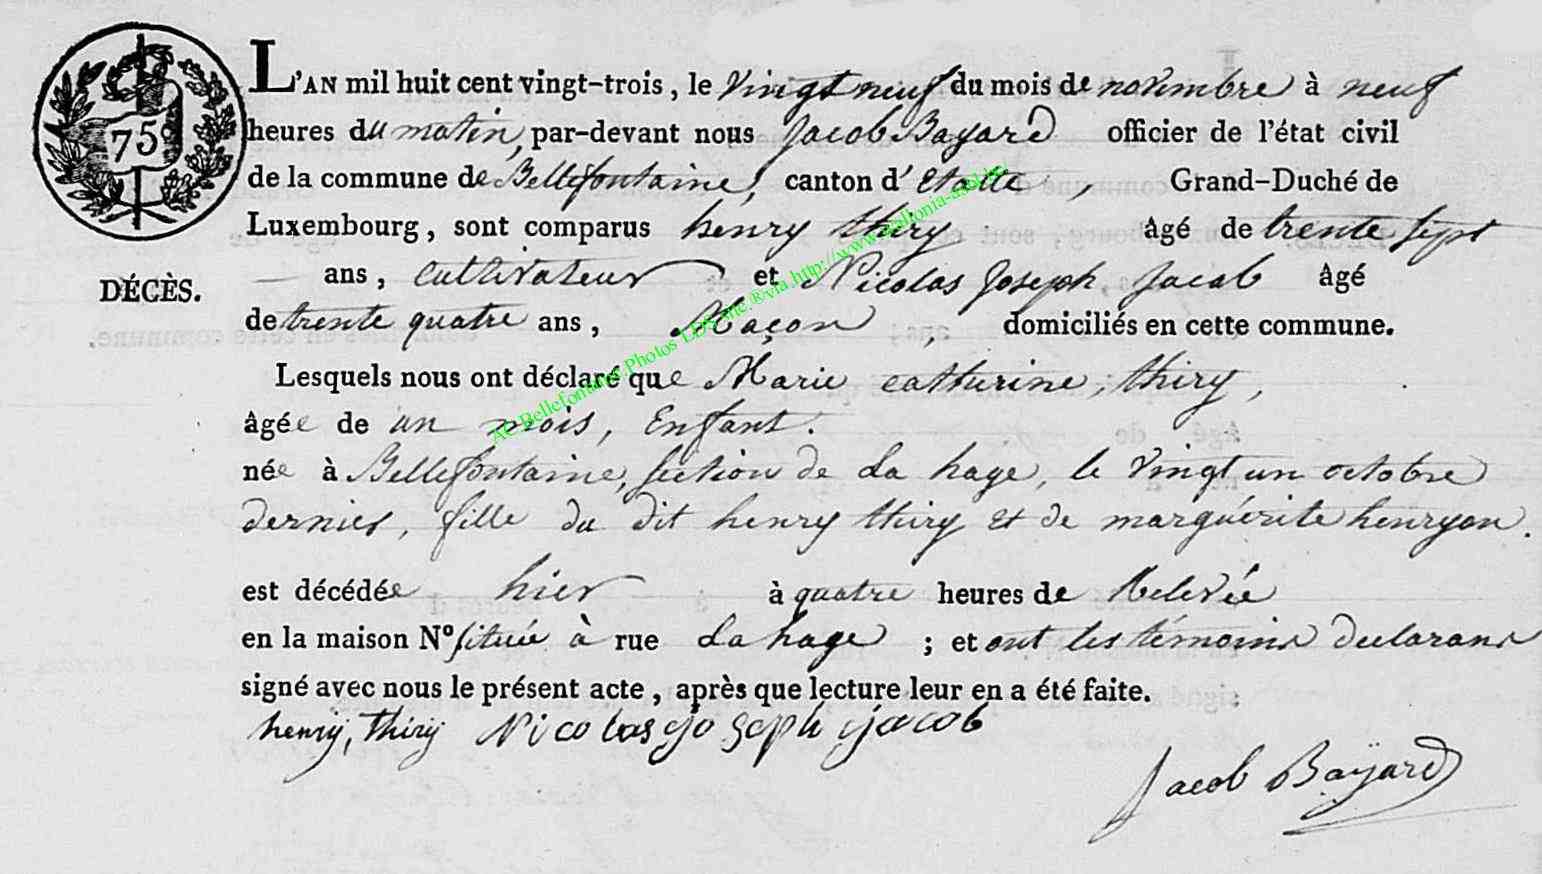 L'AN mil huit cent vingt-trois, le vingt neuf du mois de novembre à neuf
75
heures du matin, par-devant nous Jacob Bayard officier de l'état civil
de la commune de Bellefontaine, canton d'Etalle, Grand-Duché de
Luxembourg, sont comparus henry thiry âgé de trente sept
DÉCÈS.
ans, cultivateur et Nicolas Joseph Jacob âgé
de trente quatre ans, Maçon, domiciliés en cette commune.
Lesquels nous ont déclaré que Marie catturine thiry,
âgée de un mois, Enfant.
née à Bellefontaine, section de La hage, le vingt un octobre
dernier, fille du dit henry thiry et de marguérite henryon.
est décédée hier à quatre heures de Relevée
en la maison N° située à rue La hage ; et ont les témoins declarans
signé avec nous le présent acte, après que lecture leur en a été faite.
henry, thiry Nicolas joseph jacob
Jacob Bayard
AC Bellefontaine. Photos LDS